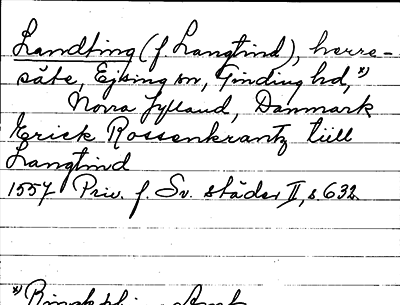 Landting (f Langtind), herre-
säte, Ejsing sn, Ginding hd, *)
Norra Jylland, Danmark
Erick Rossenkrantz tiill
Langtind
1557 Priv. f. Sv. städer II, s. 632